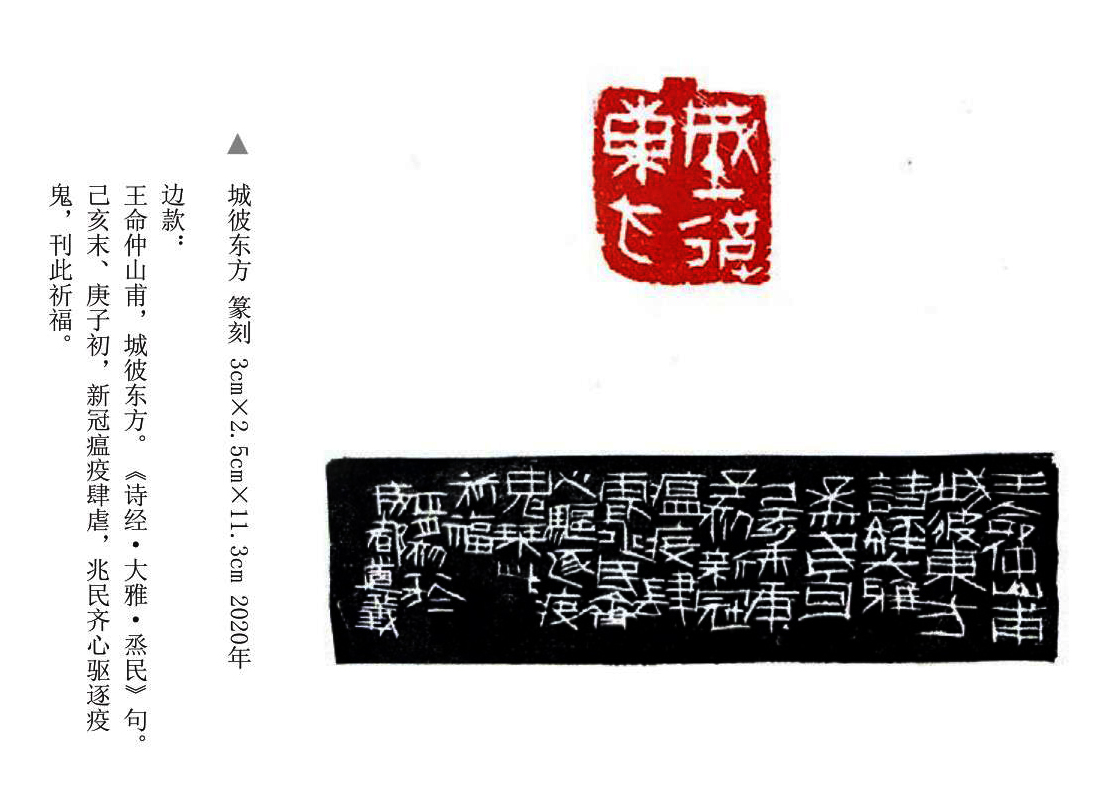 城彼
东方
王命仲山甫
城彼東方
詩經大雅
烝民句
己亥末庚
子初新冠
瘟疫肆
虐兆民齊
心驅逐疫
鬼栞此
祈福
成都道義
▲ 城彼东方 篆刻 3cm×2.5cm×11.3cm 2020年
边款：
王命仲山甫，城彼东方。《诗经·大雅·烝民》句。
己亥末、庚子初，新冠瘟疫肆虐，兆民齐心驱逐疫
鬼，刊此祈福。